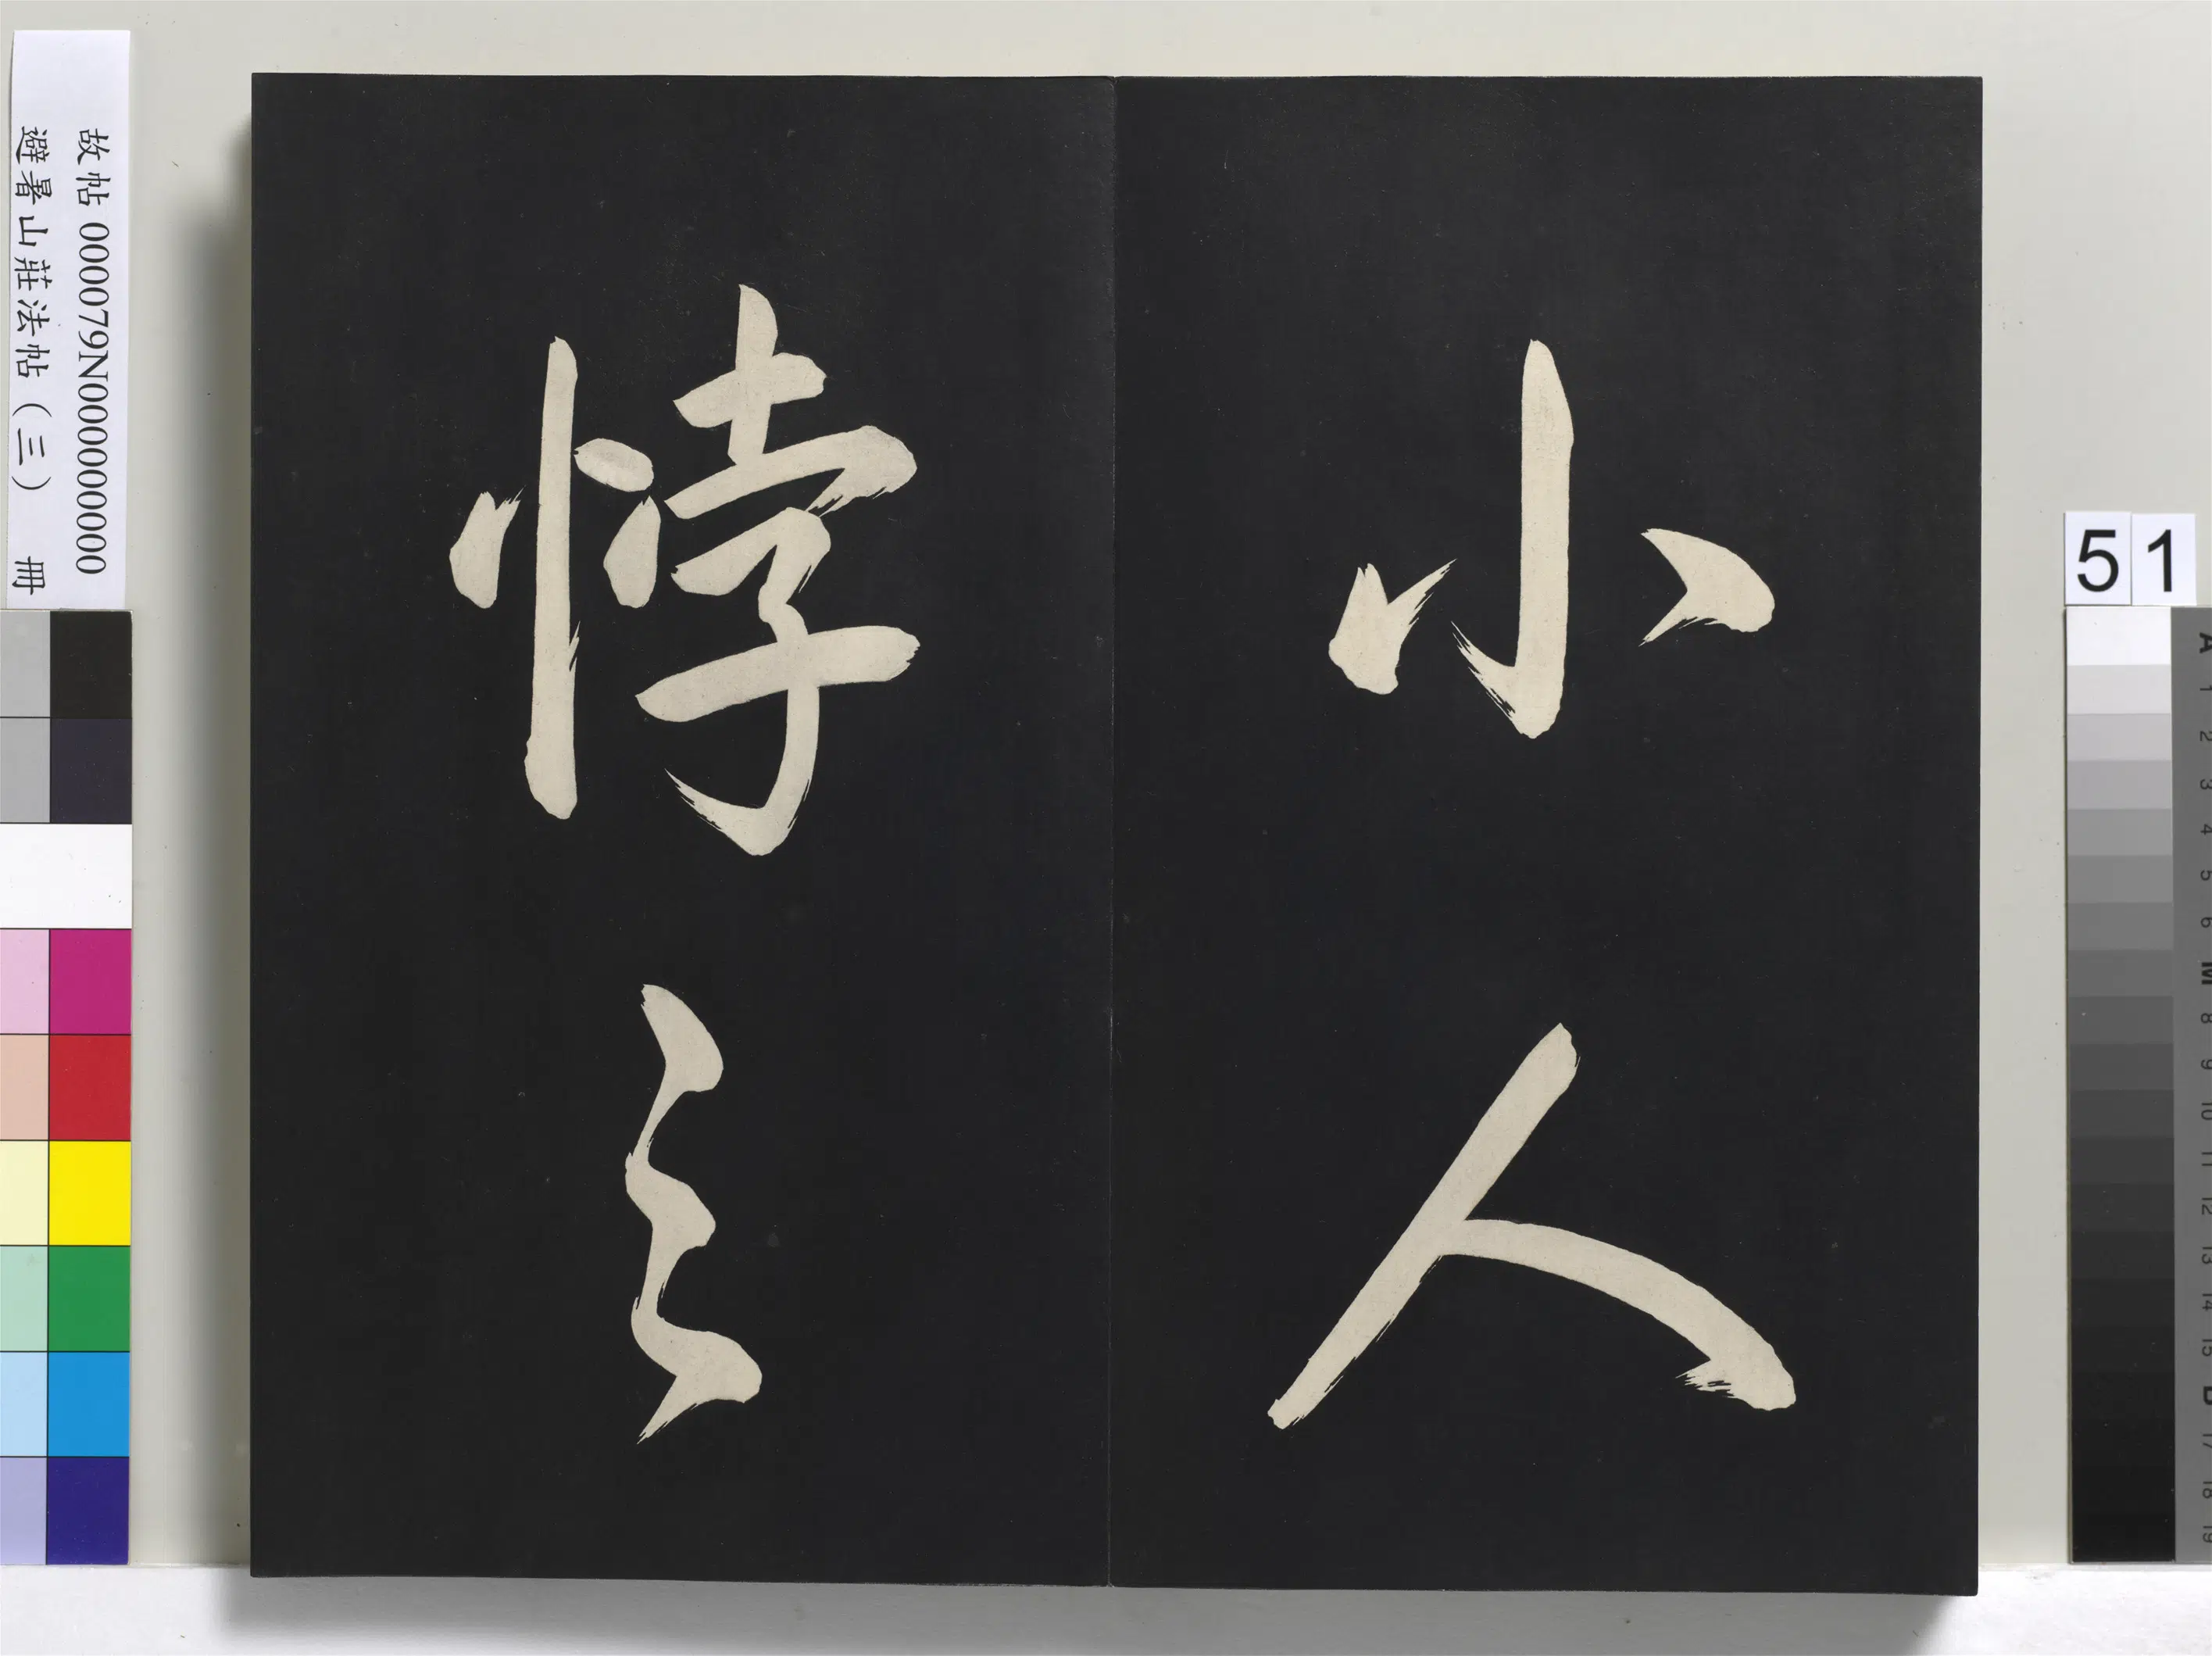 小人
悖之
故帖 000079N000000000
避暑山莊法帖（三） 冊
51
A 1 2 3 4 5 6 M 8 9 10 11 12 13 14 15 B 17 18 19